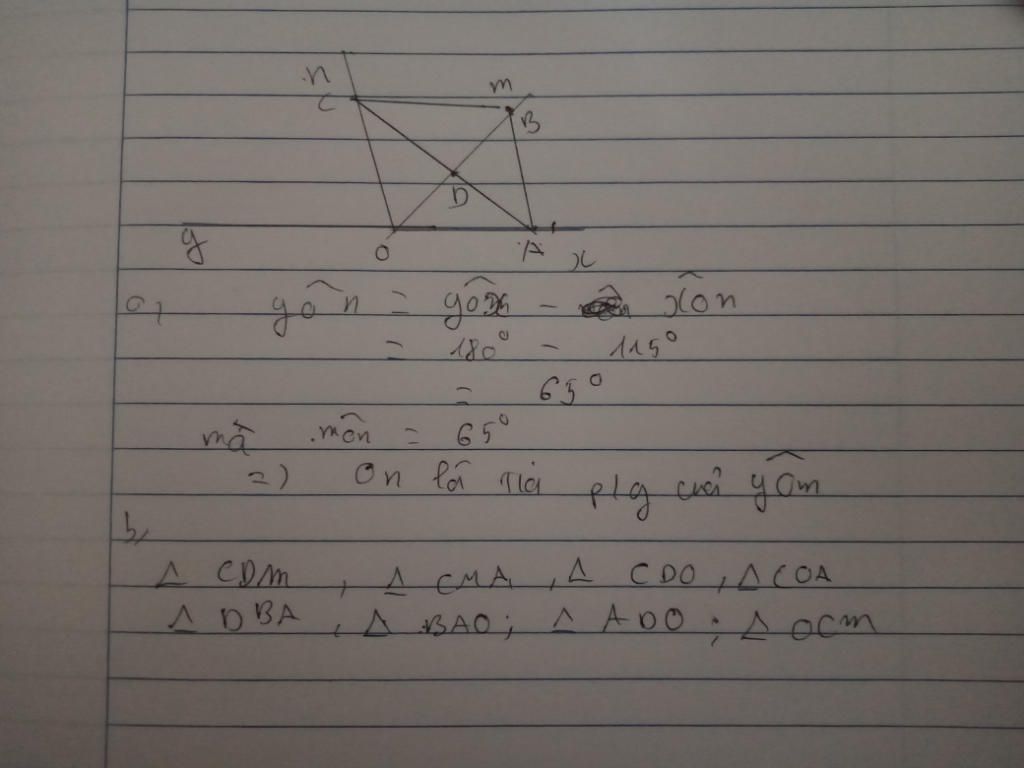 n
C
m
B
D
y
O
A
x
a,
yôn = yôx - xôn
= 180° - 115°
= 65°
mà môn = 65°
=) On là tia p/g của yôm
b,
Δ CDM, Δ CMA, Δ CDO, Δ COA
Δ DBA, Δ BAO; Δ ADO; Δ OCM